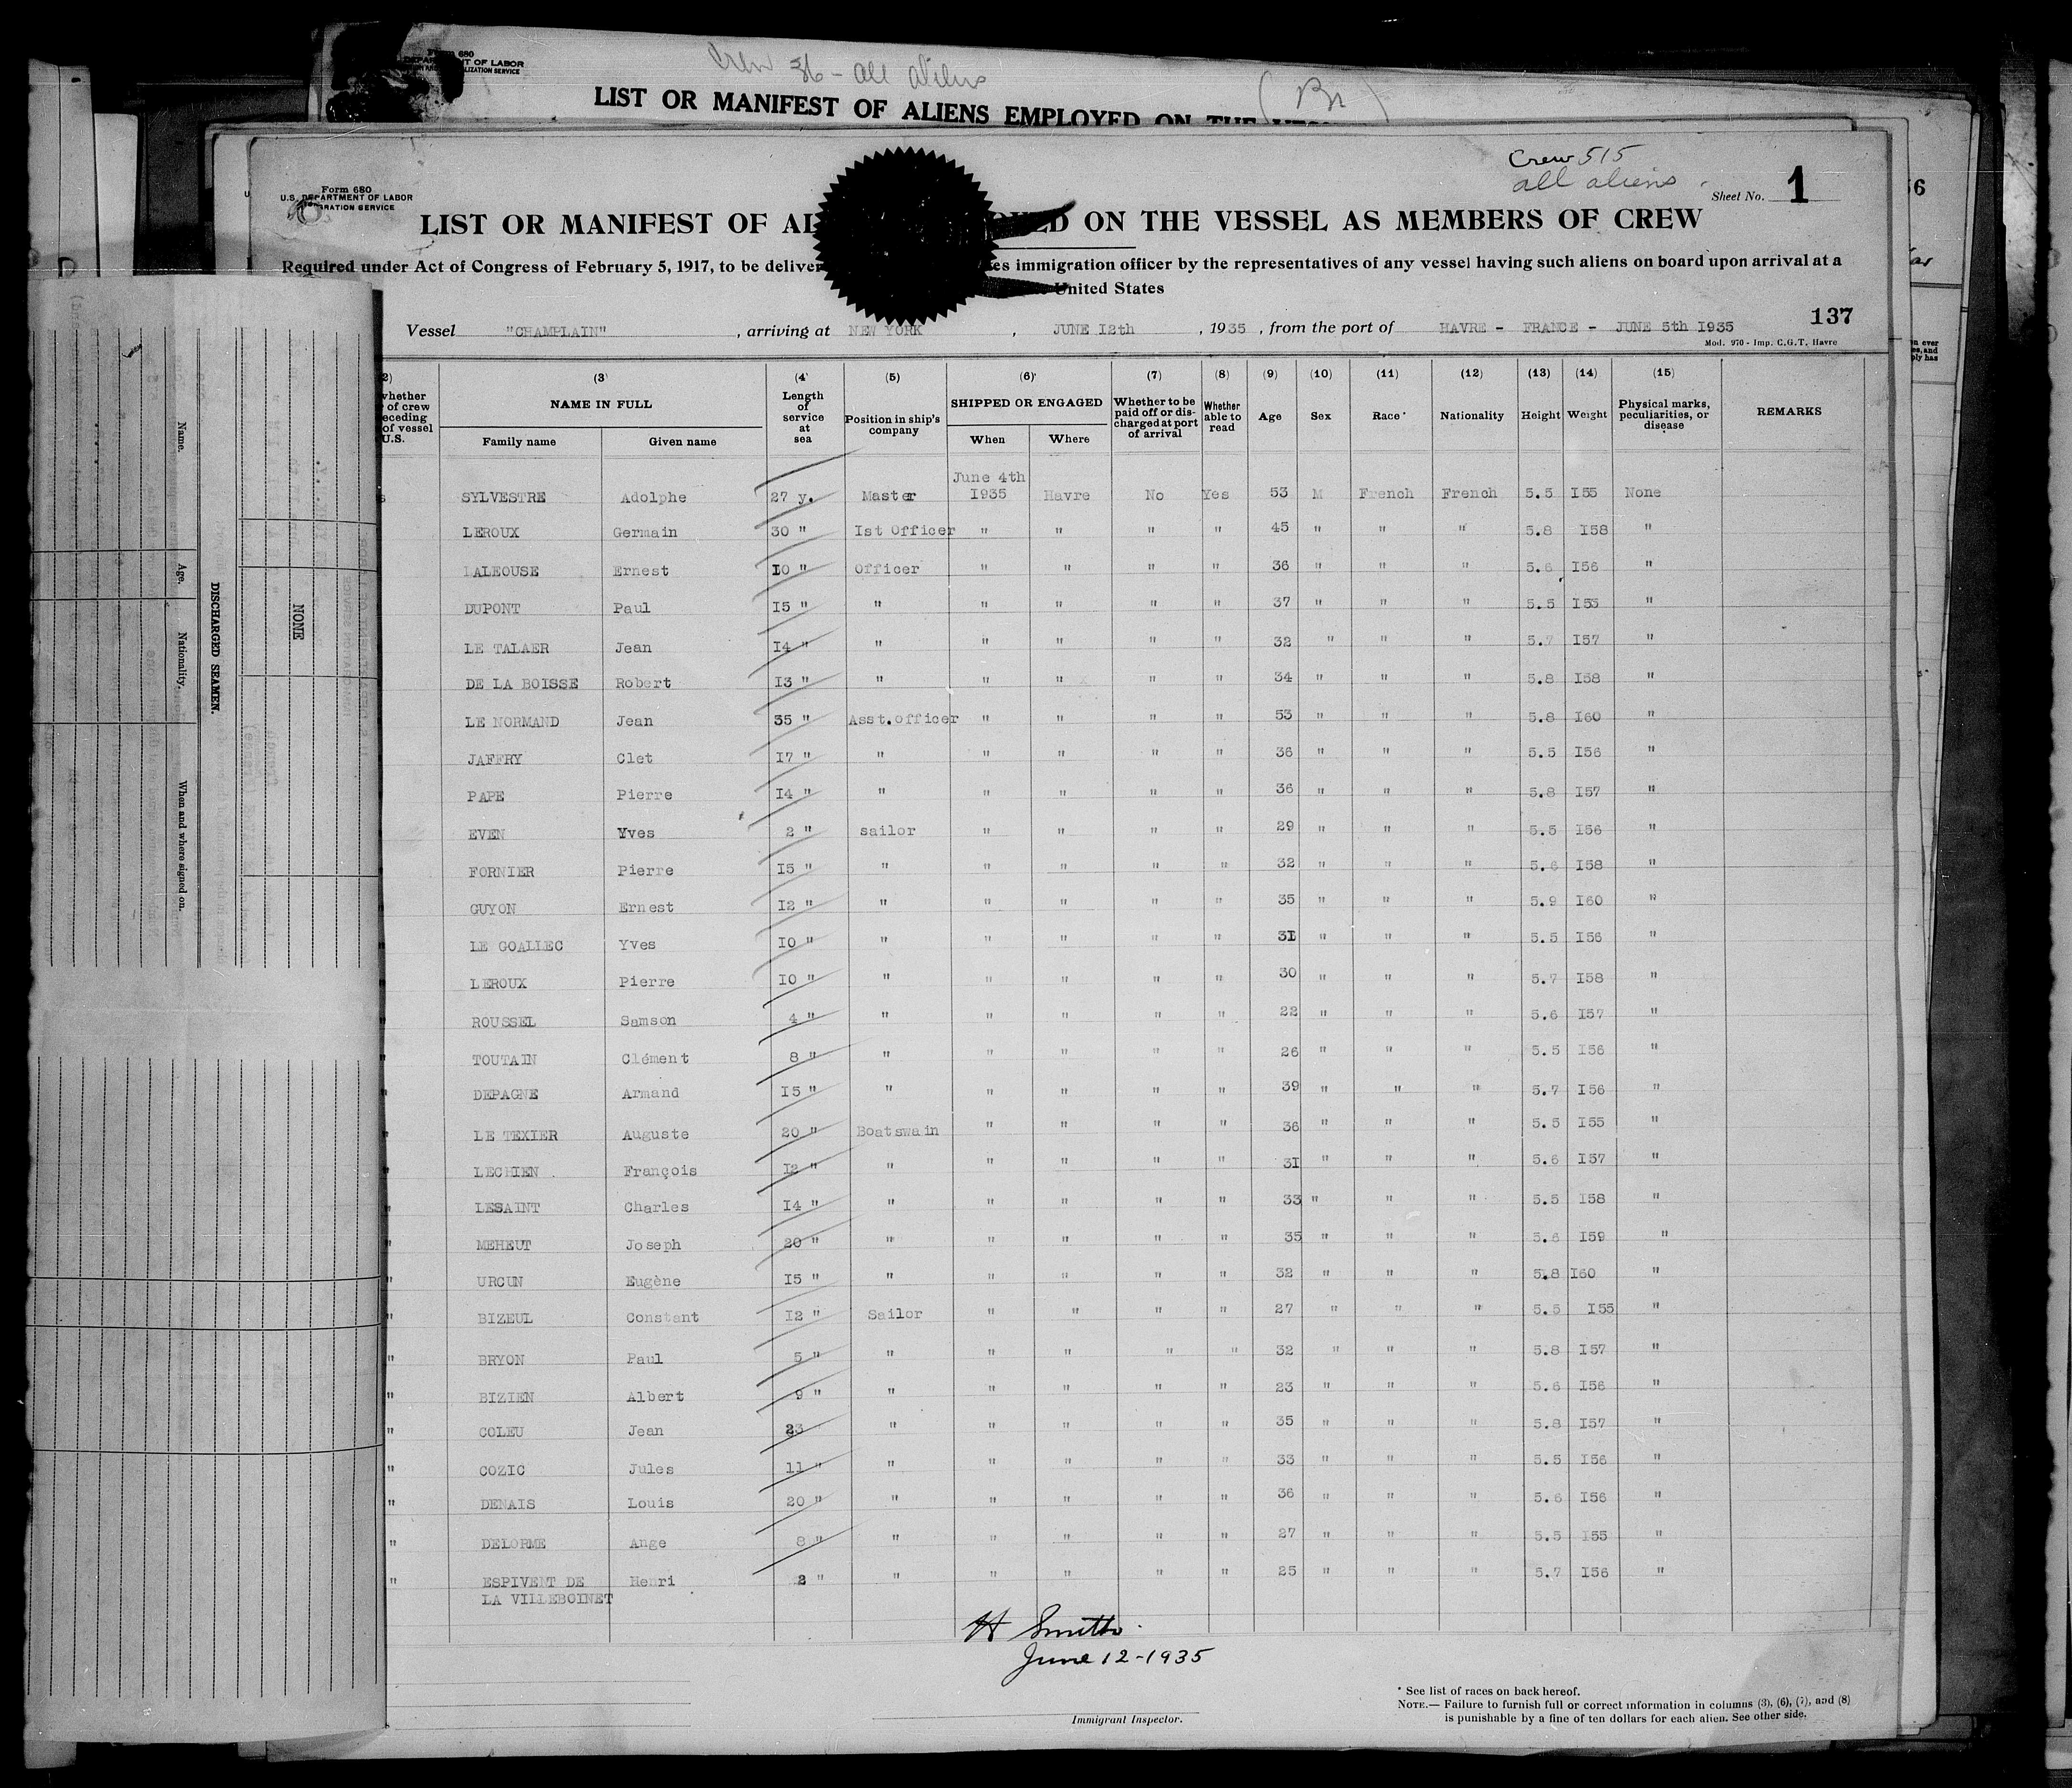 Form 680
crew 36 - all aliens
LIST OR MANIFEST OF ALIENS EMPLOYED ON THE
Form 680
U.S. DEPARTMENT OF LABOR
Crew 515
all aliens
Sheet No. 1
LIST OR MANIFEST OF AL ON THE VESSEL AS MEMBERS OF CREW
Required under Act of Congress of February 5, 1917, to be deliver es immigration officer by the representatives of any vessel having such aliens on board upon arrival at a
United States
137
Vessel "CHAMPLAIN" , arriving at NEW YORK , JUNE 12th , 1935 , from the port of HAVRE - FRANCE - JUNE 5th 1935
Mod. 970 - Imp. C.G.T. Havre
(3) NAME IN FULL Family name Given name (4) Length of service at sea (5) Position in ship's company (6) SHIPPED OR ENGAGED When Where (7) Whether to be paid off or discharged at port of arrival (8) Whether able to read (9) Age (10) Sex (11) Race* (12) Nationality (13) Height (14) Weight (15) Physical marks, peculiarities, or disease REMARKS
June 4th
SYLVESTRE Adolphe 27 y. Master 1935 Havre No Yes 53 M French French 5.5 155 None
LEROUX Germain 30 " Ist Officer " " " " 45 " " " 5.8 158 "
LALEOUSE Ernest 10 " Officer " " " " 36 " " " 5.6 156 "
DUPONT Paul 15 " " " " " " 37 " " " 5.5 155 "
LE TALAER Jean 14 " " " " " " 32 " " " 5.7 157 "
DE LA BOISSE Robert 13 " " " " " " 34 " " " 5.8 158 "
LE NORMAND Jean 35 " Asst.officer " " " " 53 " " " 5.8 160 "
JAFFRY Clet 17 " " " " " " 36 " " " 5.5 156 "
PAPE Pierre 14 " " " " " " 36 " " " 5.8 157 "
EVEN Yves 2 " sailor " " " " 29 " " " 5.5 156 "
FORNIER Pierre 15 " " " " " " 32 " " " 5.6 158 "
GUYON Ernest 12 " " " " " " 35 " " " 5.9 160 "
LE GOALLEC Yves 10 " " " " " " 31 " " " 5.5 156 "
LEROUX Pierre 10 " " " " " " 30 " " " 5.7 158 "
ROUSSEL Samson 4 " " " " " " 22 " " " 5.6 157 "
TOUTAIN Clément 8 " " " " " " 26 " " " 5.5 156 "
DEPAGNE Armand 15 " " " " " " 39 " " " 5.7 156 "
LE TEXIER Auguste 20 " Boatswain " " " " 36 " " " 5.5 155 "
LECHIEN François 12 " " " " " " 31 " " " 5.6 157 "
LESAINT Charles 14 " " " " " " 33 " " " 5.5 158 "
MEHEUT Joseph 20 " " " " " " 35 " " " 5.6 159 "
URCUN Eugène 15 " " " " " " 32 " " " 5.8 160 "
BIZEUL Constant 12 " Sailor " " " " 27 " " " 5.5 155 "
BRYON Paul 5 " " " " " " 32 " " " 5.8 157 "
BIZIEN Albert 9 " " " " " " 23 " " " 5.6 156 "
COLEU Jean 23 " " " " " 35 " " " 5.8 157 "
COZIC Jules 11 " " " " " " 33 " " " 5.5 156 "
DENAIS Louis 20 " " " " " " 36 " " " 5.6 156 "
DELORME Ange 8 " " " " " " 27 " " " 5.5 155 "
ESPIVENT DE Henri 2 " " " " " " 25 " " " 5.7 156 "
LA VILLEBOINET
H Smith
June 12-1935
Immigrant Inspector.
* See list of races on back hereof.
NOTE.— Failure to furnish full or correct information in columns (3), (6), (7), and (8)
is punishable by a fine of ten dollars for each alien. See other side.
Name. Age. Nationality. When and where signed on.
DISCHARGED SEAMEN.
NONE